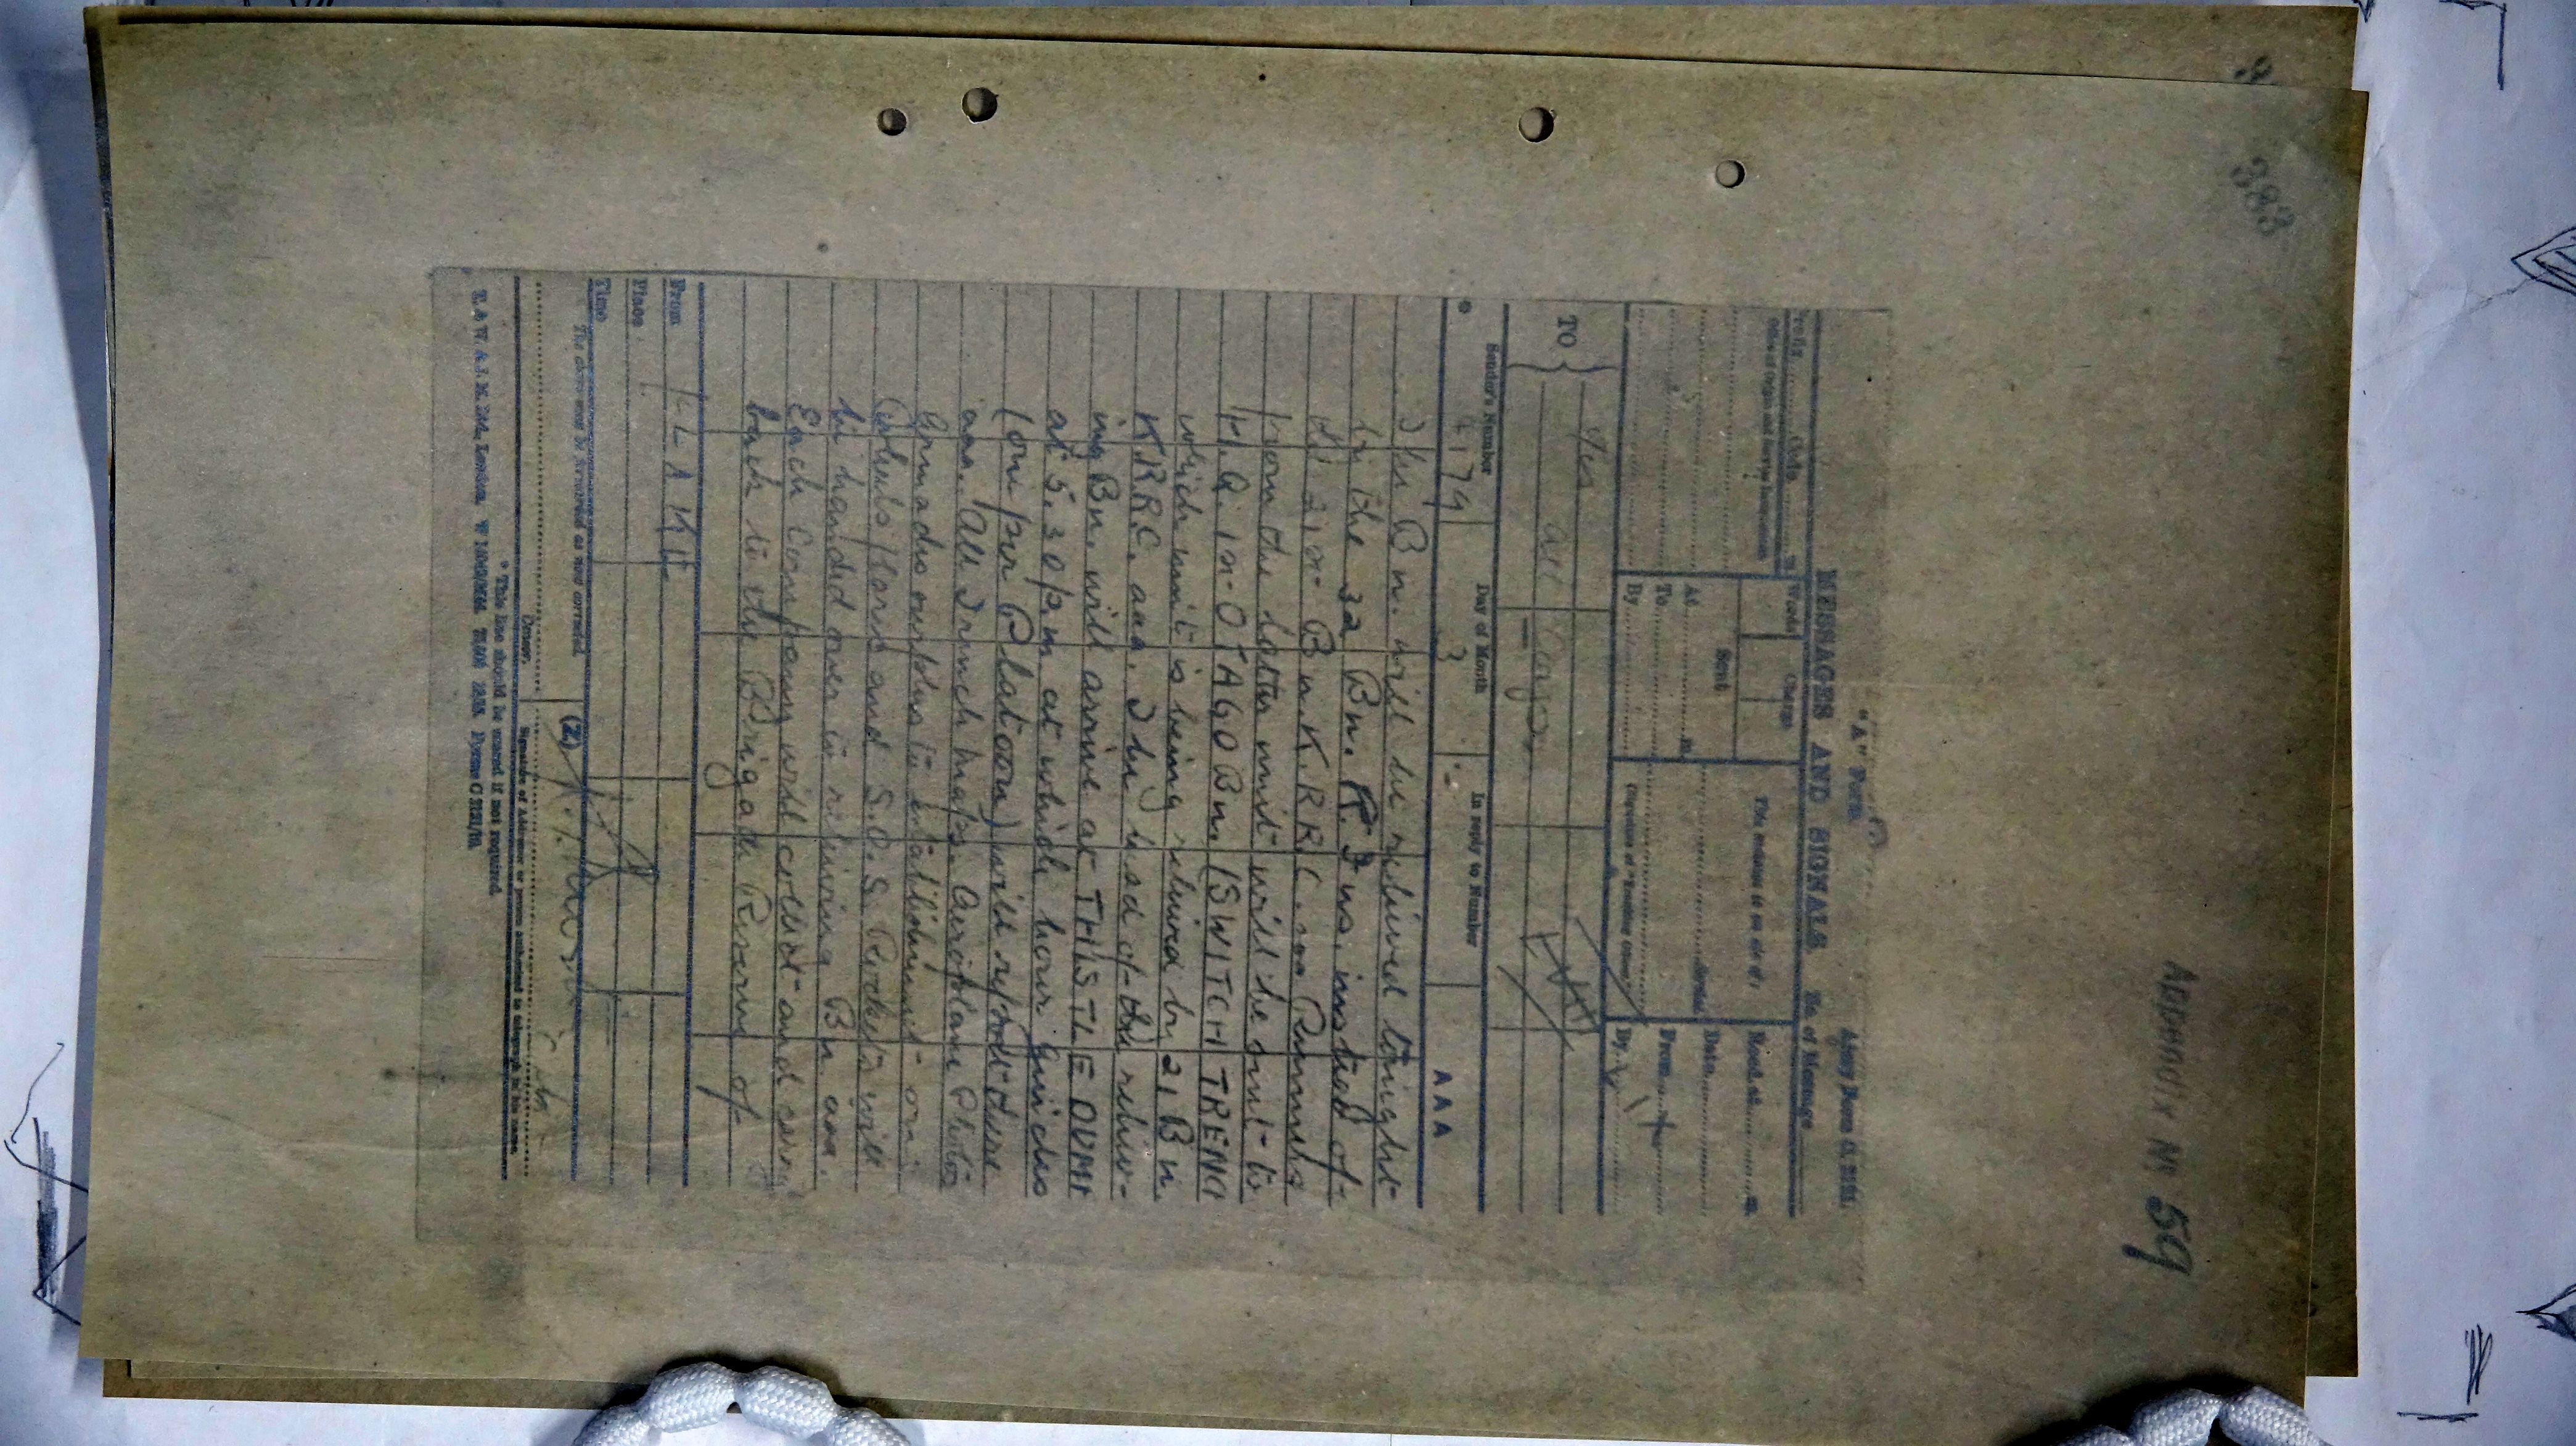 383
APPENDIX No 59
"A" Form.
Army Form C. 2121.
MESSAGES AND SIGNALS.
No. of Message
Prefix Code m
Words
Charge
This message is on a/c of:
Recd. at m.
Office of Origin and Service Instructions
Sent
Date
At m.
Service
From
To
By
(Signature of "Franking Officer")
By
TO
All Coys
Sender's Number
Day of Month
In reply to Number
AAA
The Bn. will be relieved tonight
by the 32 Bn. R. Fus. instead of
21st Bn K.R.R.C. aaa Runners
from the latter unit will be sent to
H.Q. 1st OTAGO Bn. (SWITCH TRENCH
which unit is being relieved by 21 Bn.
KRRC. aaa. The head of the reliev-
ing Bn. will arrive at THISTLE DUMP
at 5.30 pm at which hour Guides
(one per Platoon) will report there
aaa. All Trench maps. Aeroplane Photos
Grenades surplus to establishment
Petrols /flares and S.O.S. Rockets will
be handed over to relieving Bn aaa.
Each Company will collect and carry
back to the Brigade Reserve of
From FLAKE
Place
Time
The above may be forwarded as now corrected
(Z)
Censor.
Signature of Addressor or person authorised to telegraph in his name.
* This line should be erased if not required.